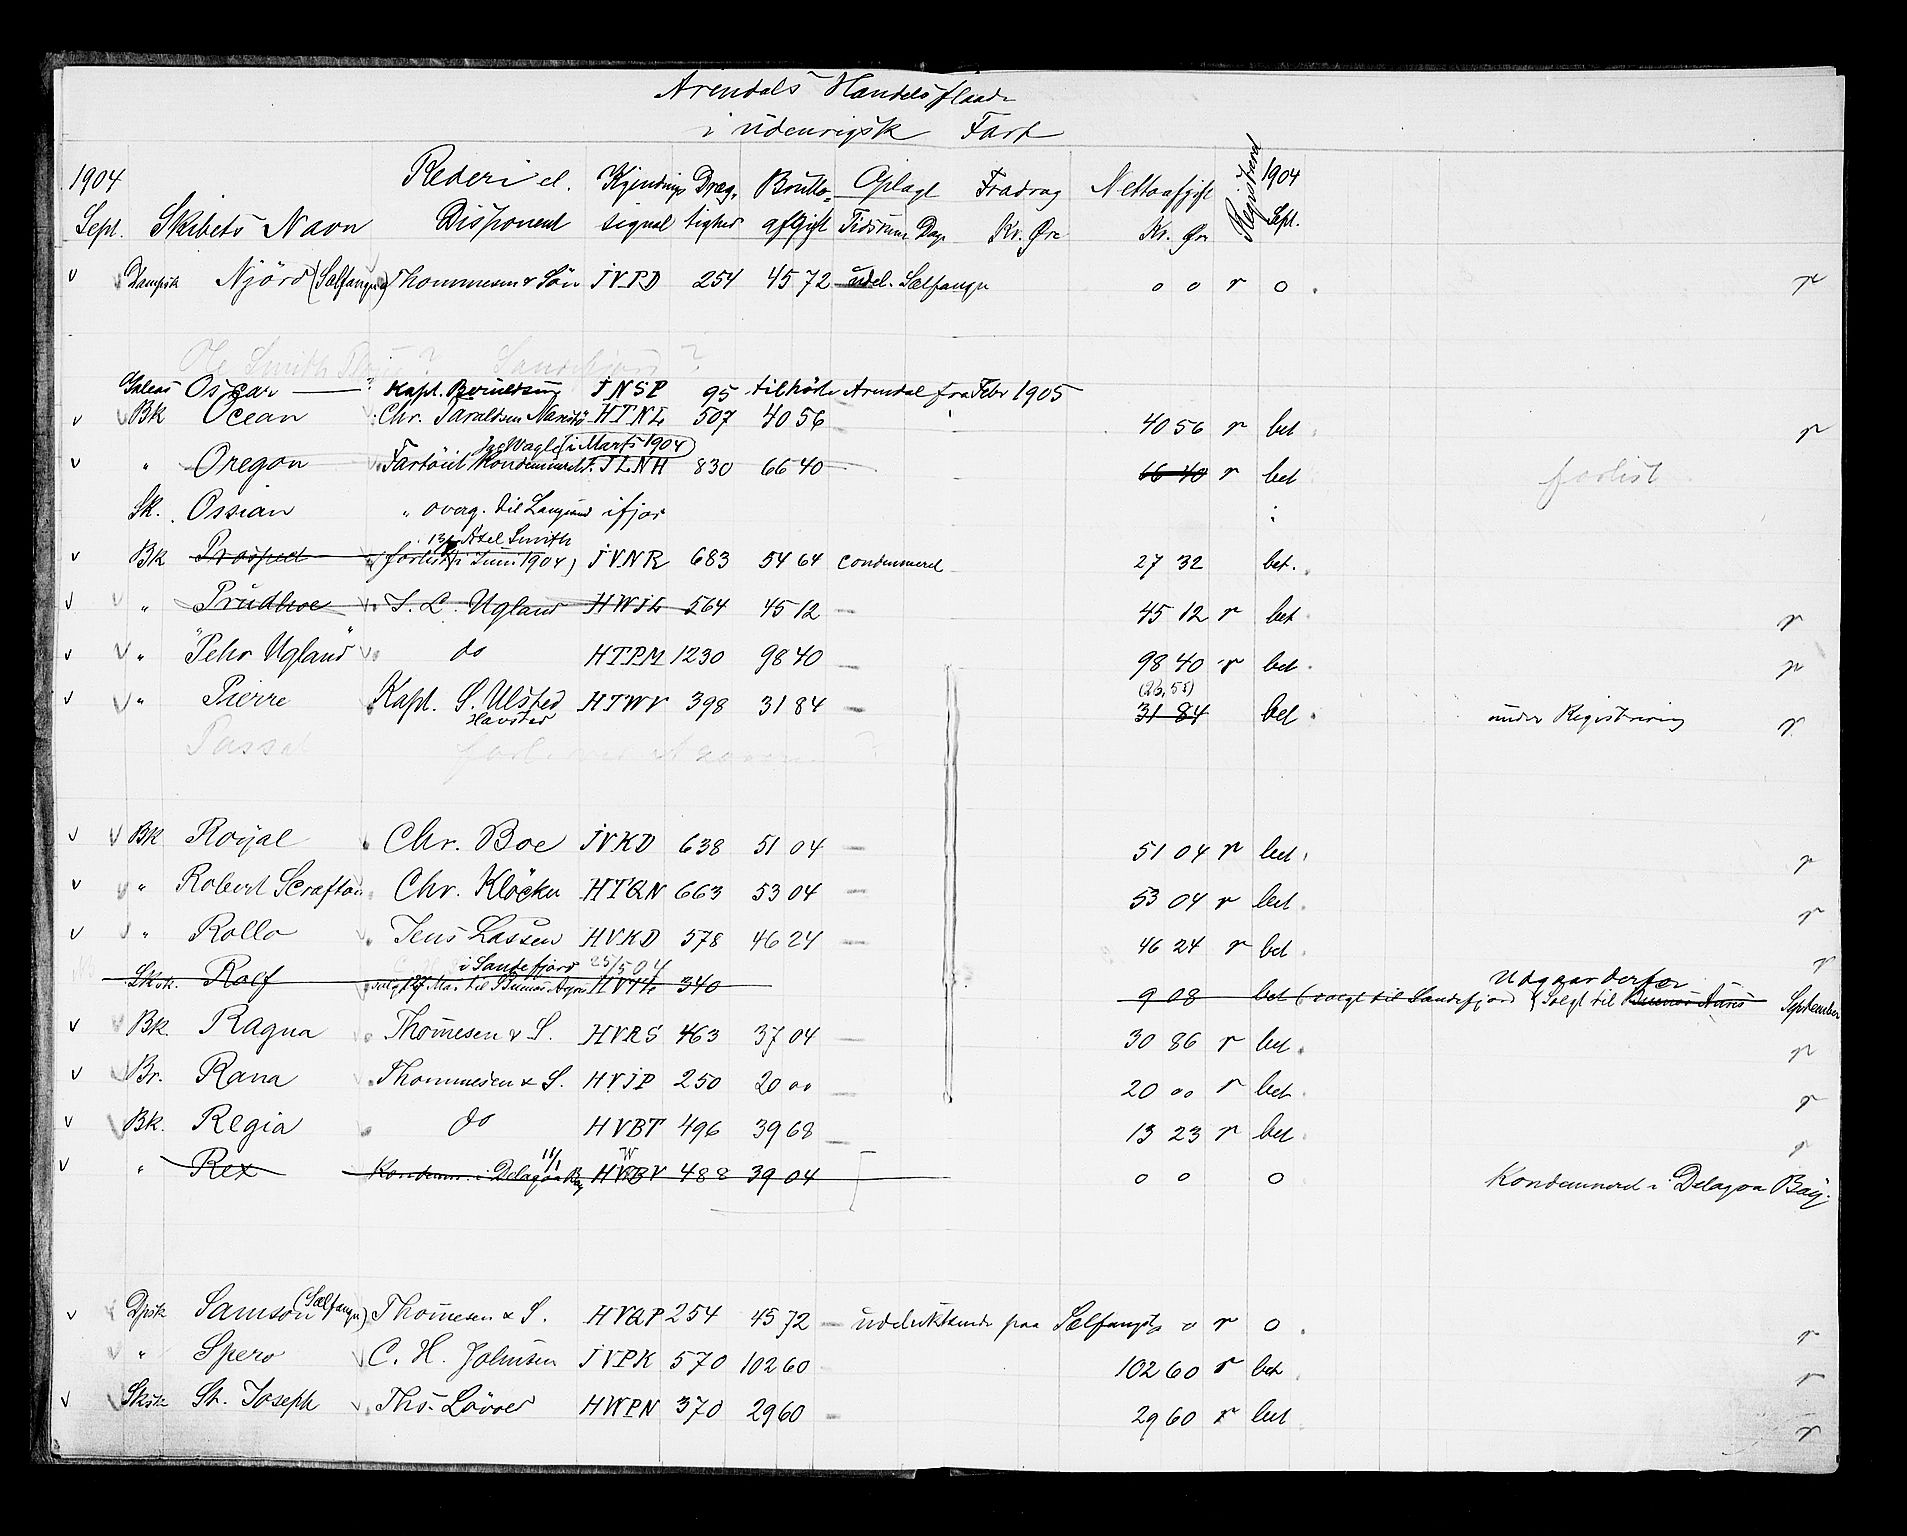 Arendals Handelsflaade
i udenrigsk Fart
1904 Rederi el. Kjendings Dræg. Brutto= Oplagt Fradrag Nettoafgift Registrerd 1904
Sept. Skibets Navn Disponent signal tighed afgift Tidsrum Dage Kr. Øre Kr. Øre Sept.
v Dampsk Njörd (Sælfanger) Thommesen & Sön JVPD 254 45 72 udel. Sælfanger 0 0 r 0 . r
Ole Smith ? Sandefjord ?
Galeas Oscar — ? Kapt. JNSP 95 tilhörte Arendal fra Febr 1905
v Bk Ocean Chr. Taraldsen Narestö HTNL 507 40 56 40 56 r bet r
(i Marts 1904)
v " Oregon Fartöiet Kondemneret. JLNH 830 66 40 66 40 r bet forlist
Sk. Ossian " overg. til Langesund ifjor
Axel Smith
v Bk Prosped (forlist i Juni 1904) JVNR 683 54 64 condemnered 27 32 bet.
v " Prudhoe J. L. Ugland HWJL 564 45 12 — 45 12 r bet r
v " "Pehr Ugland" do HTPM 1230 98 40 — 98 40 r bet r
(23,55)
v " Pierre Kapt. S. Ulsted HTWV 398 31 84 — 31 84 bet under Registrering r
Havsted
Passat ?
v Bk Royal Chr. Boe JVKD 638 51 04 — 51 04 r bet r
v " Robert Scrafton Chr. Klöcker HTQN 663 53 04 — 53 04 r bet r
v " Rollo Jens Lassen HVKD 578 46 24 — 46 24 r bet r
i Sandefjord 25/5 04 Udgaar derfor
Sksk. Rolf solgt Mai til Buenos Ayres 340 9 08 bet (solgt til Sandefjord) (Solgt til Buenos Aires September
v Bk. Ragna Thomesen & S. HVRS 463 37 04 — 30 86 r bet r
v Br. Rana Thommesen & S. HVJP 250 20 00 — 20 00 r bet r
v Bk. Regia do HVBT 496 39 68 — 13 23 r bet r
11/1 W
v " Rex Kondem. i Delagoa Bay HVBV 488 39 04 0 0 0 Kondemnered i Delagoa Bay.
v Dpsk Samson (Sælfanger) Thomesen & S. HVQP 254 45 72 — udelukkende paa Sælfangst 0 r 0 . r
" Spero C. H. Johnsen JVPK 570 102 60 102 60 r bet r
v Sksk St. Joseph Ths. Lövold HWPN 370 29 60 — 29 60 r bet r